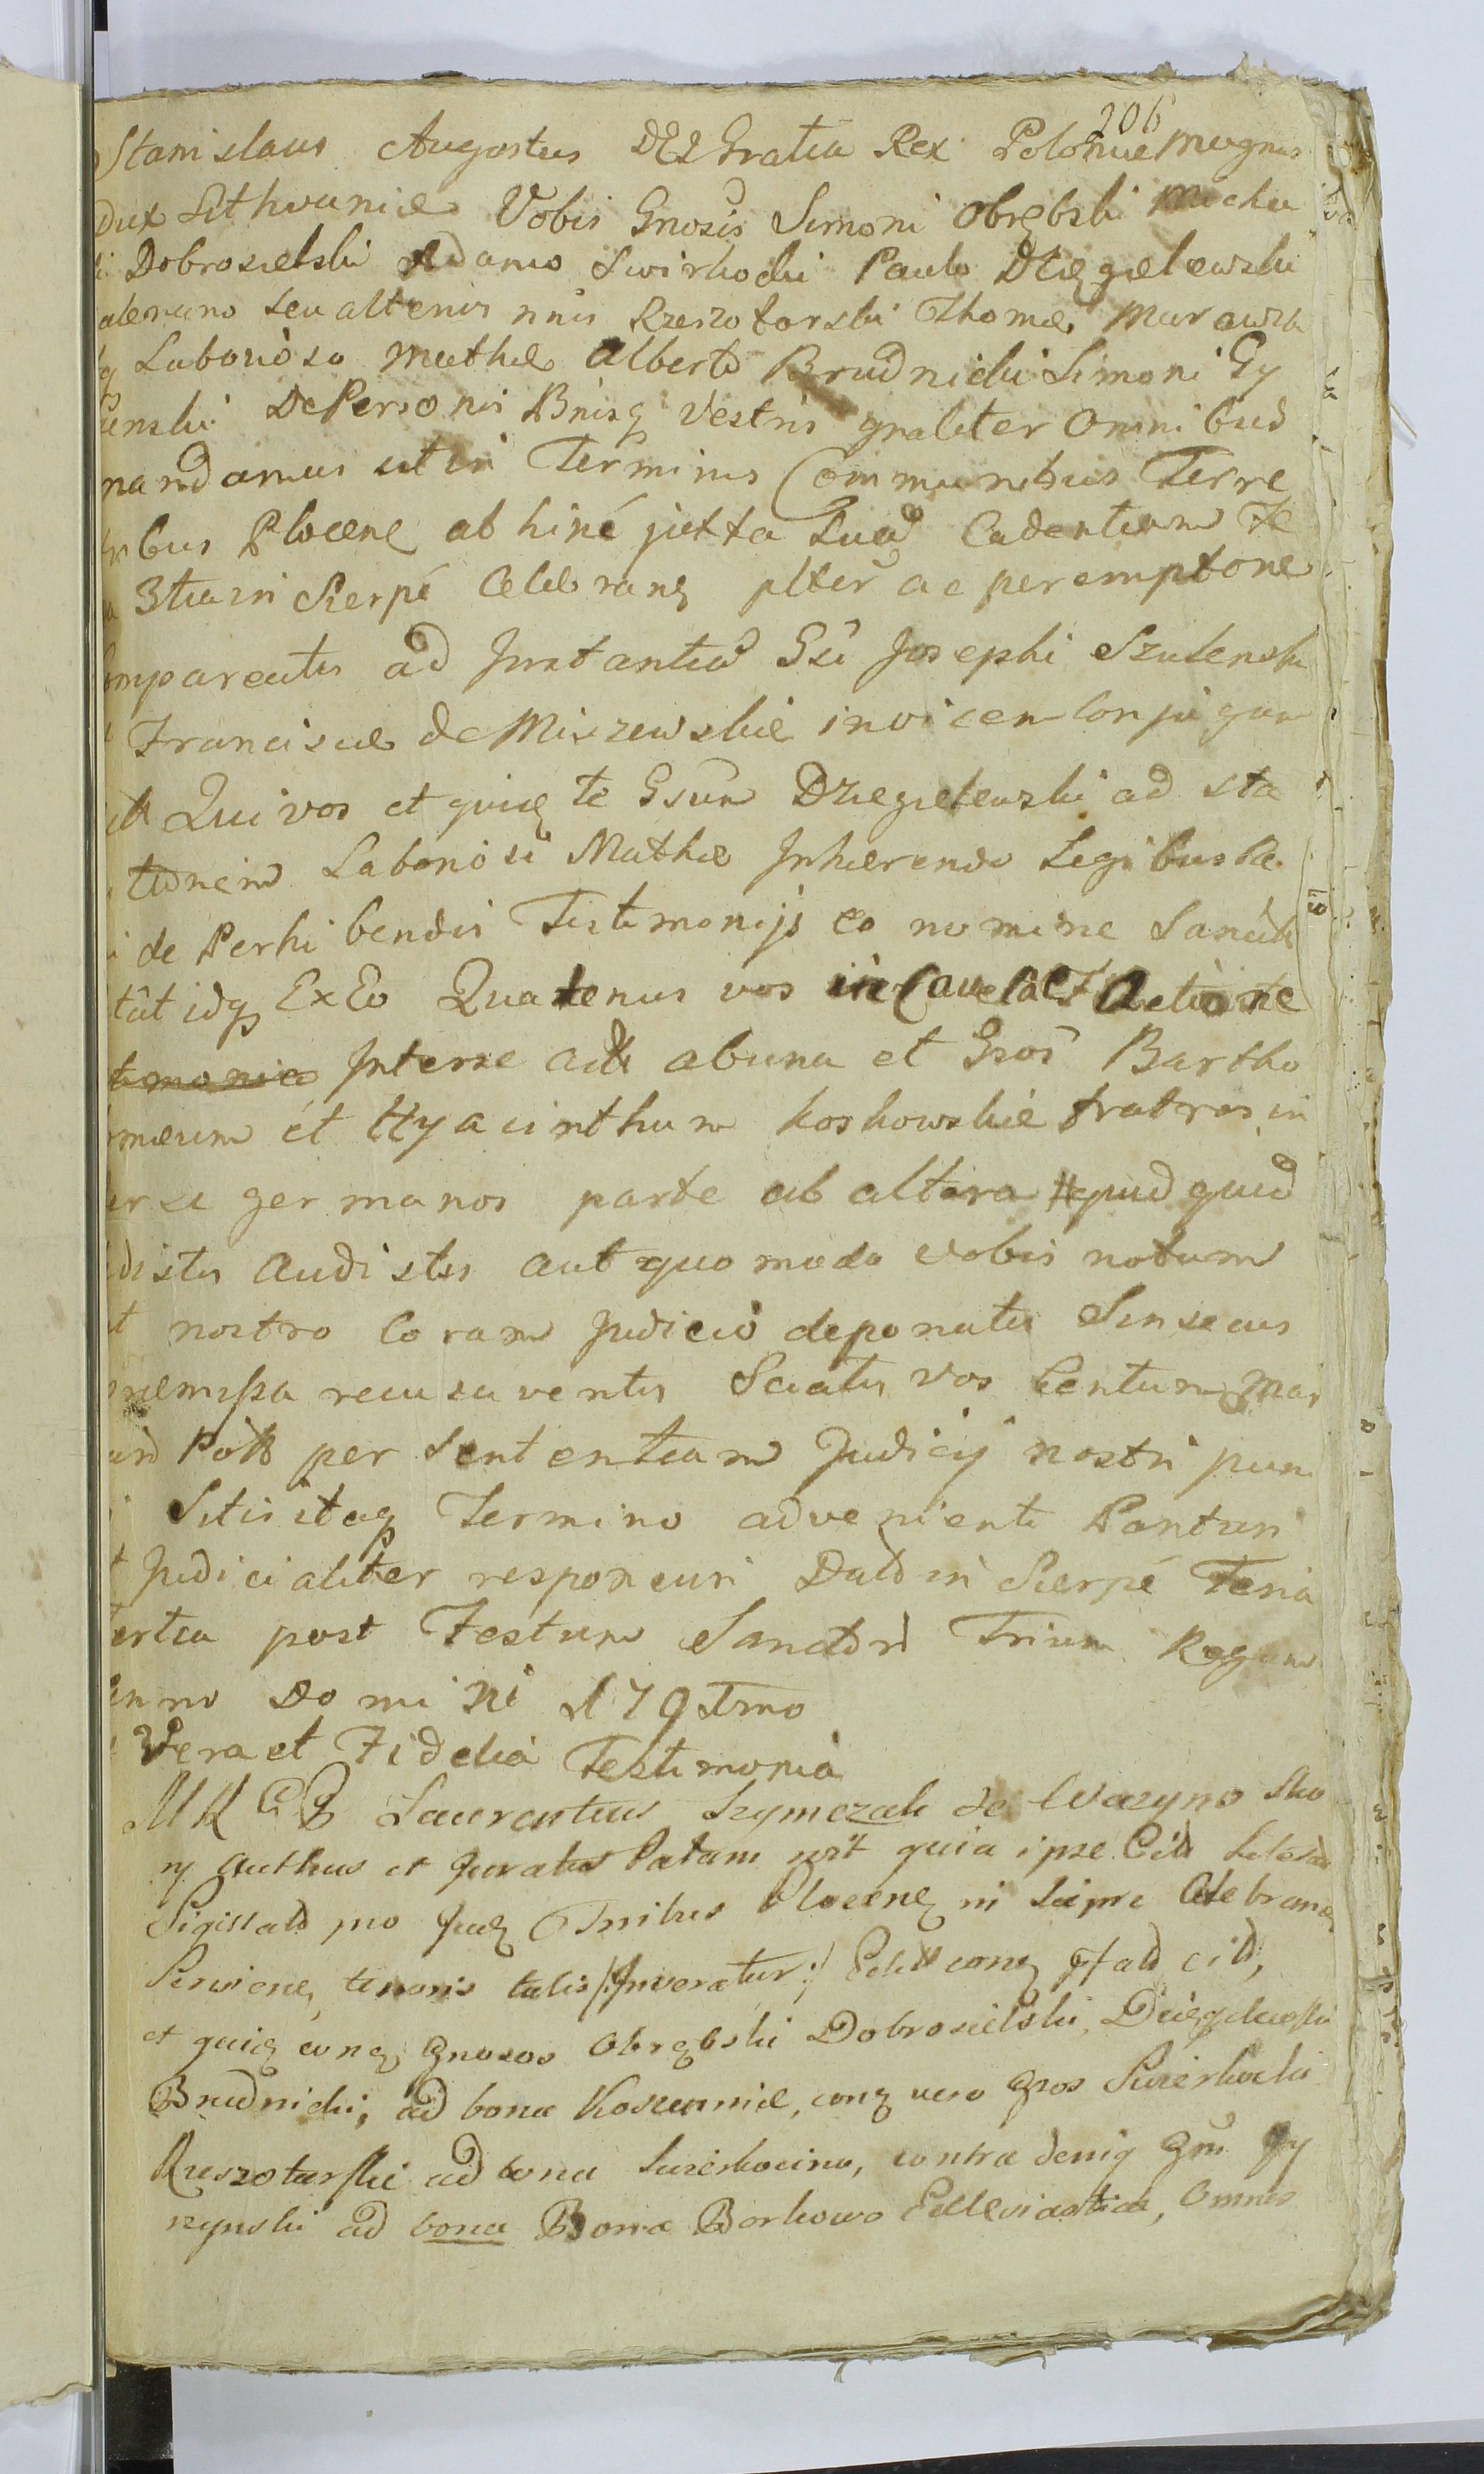 206
Stanislaus Augustus DEI Gratia Rex Poloniæ Magnus
Dux Lithvaniæ Vobis Gnosis Simoni Obrębski Micha
li Dobrosielski Adamo Swirkocki Paulo Dzięgielewski
seu alterius nnis Rzeszotarski Thomæ Murawsk
Laborioso Mathæ Alberto Brudnicki Simoni Gy
De Personis Bnisq Vestris gnaliter Omnibus
mandamus ut in Terminis Communibus Terre
bus Plocen abhinc juxta Suad Cadentiam Te
3tia in Sierpc Celebran plter ac peremptorie
ompareatis ad Instantia Gsi Josephi Szulensk
Franciscæ de Miszewskie invicem Conjugum
Qui vos et quid te Gsum Dziegielewski ad sta
tionem Laboriosi Mathæ Inhærendo Legibus Re
i de Perhibendis Testimonijs eo nomine Sancit
tat idq Ex Eo Quatenus vos in Causa et Actione
timonio Inter se actt ab una et Gsos Bartho
mæum et Hyacinthum Koskowskie fratres in
er se germanos parte ab altera quid quid
distis audistis aut quo modo vobis notum
t nostro Coram Judicio deponatis Sin secus
præmissa recusaventis Sciatis vos Centum Mar
Poll per Sententiam Judicij nostri pun
Sitis itaq Termino adveniente Parituri
t Judicialiter responsuri Datt in Sierpc Feria
ertia post Festum Sanctor Trium Regum
nno Domini 179 Imo
Vera et Fidelia Testimonia
MK Laurentius Szymczak de Warzyno Sko
ry Authus et Juratus Palam quia ipse Citt
Sigillatt pro Jud Tnibus Plocen in Sierpc Celebran
Servien tenoris talis /:Inseratur:/ Edit con pfatt citt,
et quid con Gnosos Obrębski Dobrosielski, Dzięgielewski
Brudnicki, ad bona Koszewnie, con vero Gsos Swierkocki
Rzeszotarski ad bona Swierkocino, contra deniq Gy
rzynski ad bona Bona Borkowo Ecclesiastica, Omnes